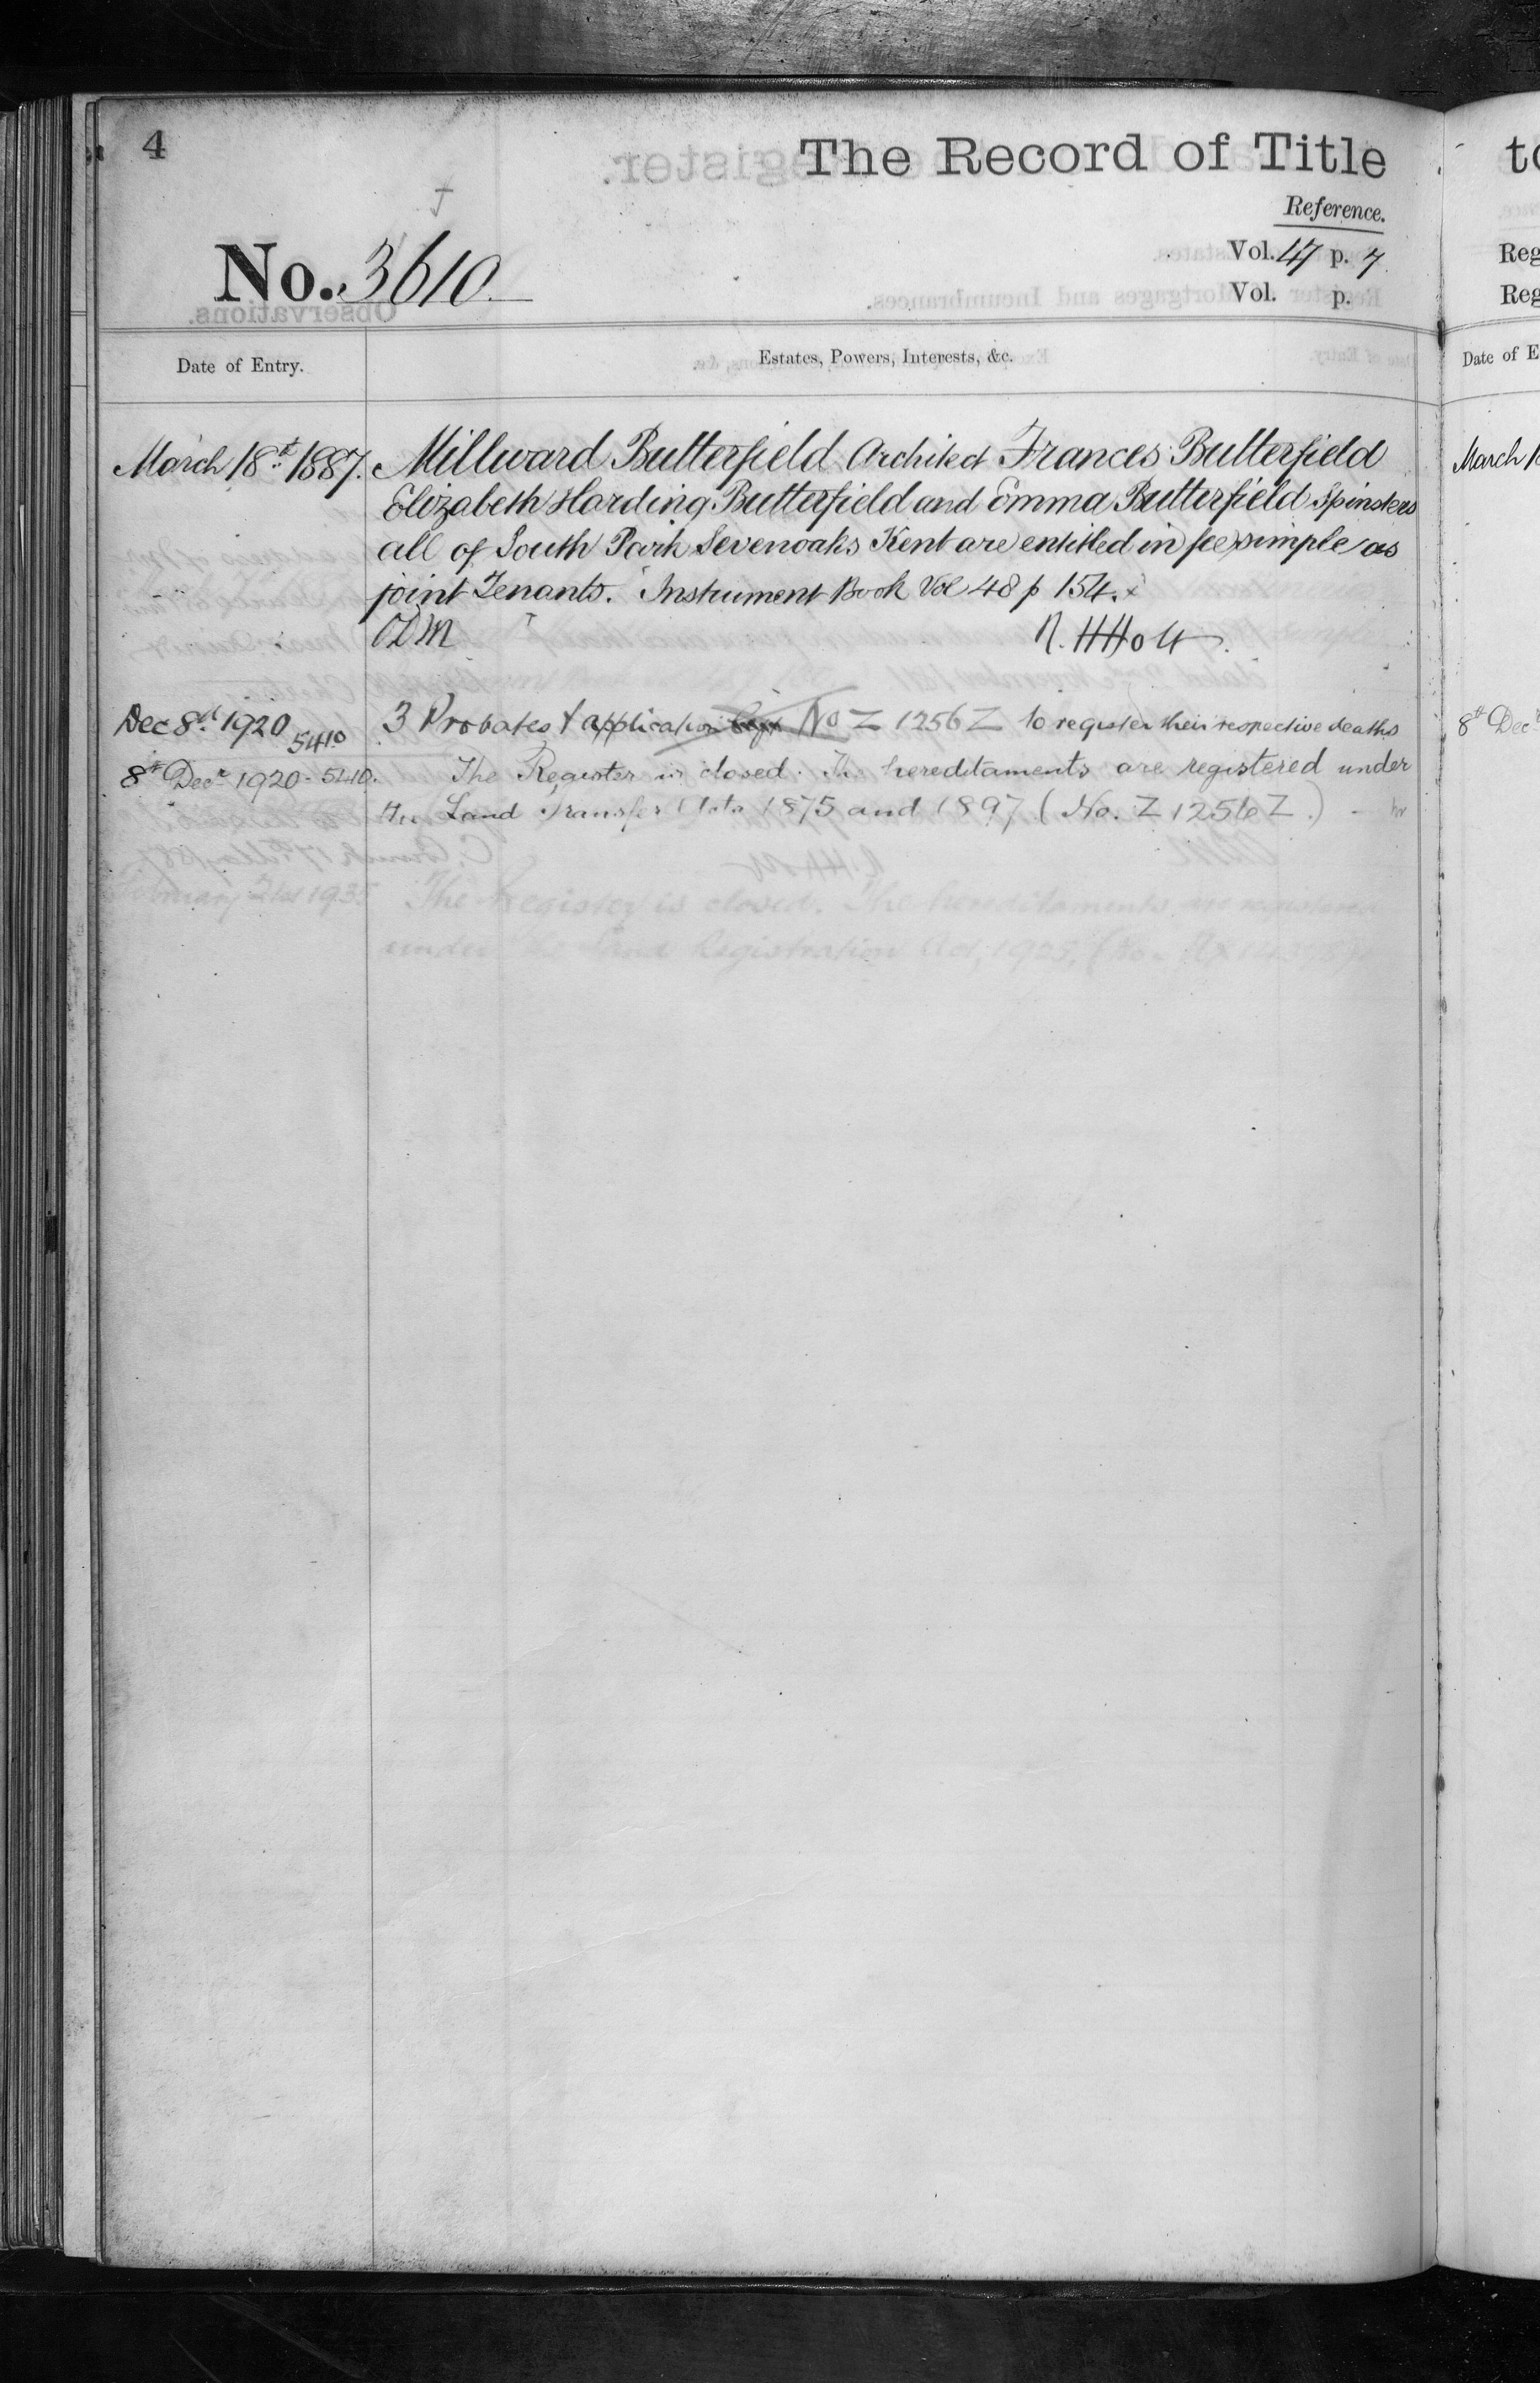 4
The Record of Title
Reference.
No. 3610
Vol. 47 p. 7
Vol. p.
Date of Entry.
Estates, Powers, Interests, &c.
March 18th 1887.
Millward Butterfield Architect Frances Butterfield
Elizabeth Harding Butterfield and Emma Butterfield Spinsters
all of South Park Sevenoaks Kent are entitled in fee simple as
joint Tenants. Instrument Book Vol 48 p 154.
ODM R. H Holt
Dec 8th 1920 5410
3 Probates & application No Z 1256 Z to register their respective deaths
8th Decr 1920 - 5410.
The Register is closed. The hereditaments are registered under
the Land Transfer Acts 1875 and 1897 (No. Z 1256 Z.)
February 21st 1935
The Register is closed. The hereditaments are registered
under the Land Registration Act, 1925, (No.
to
Reg
Reg
Date of E
March 1
8th Decr